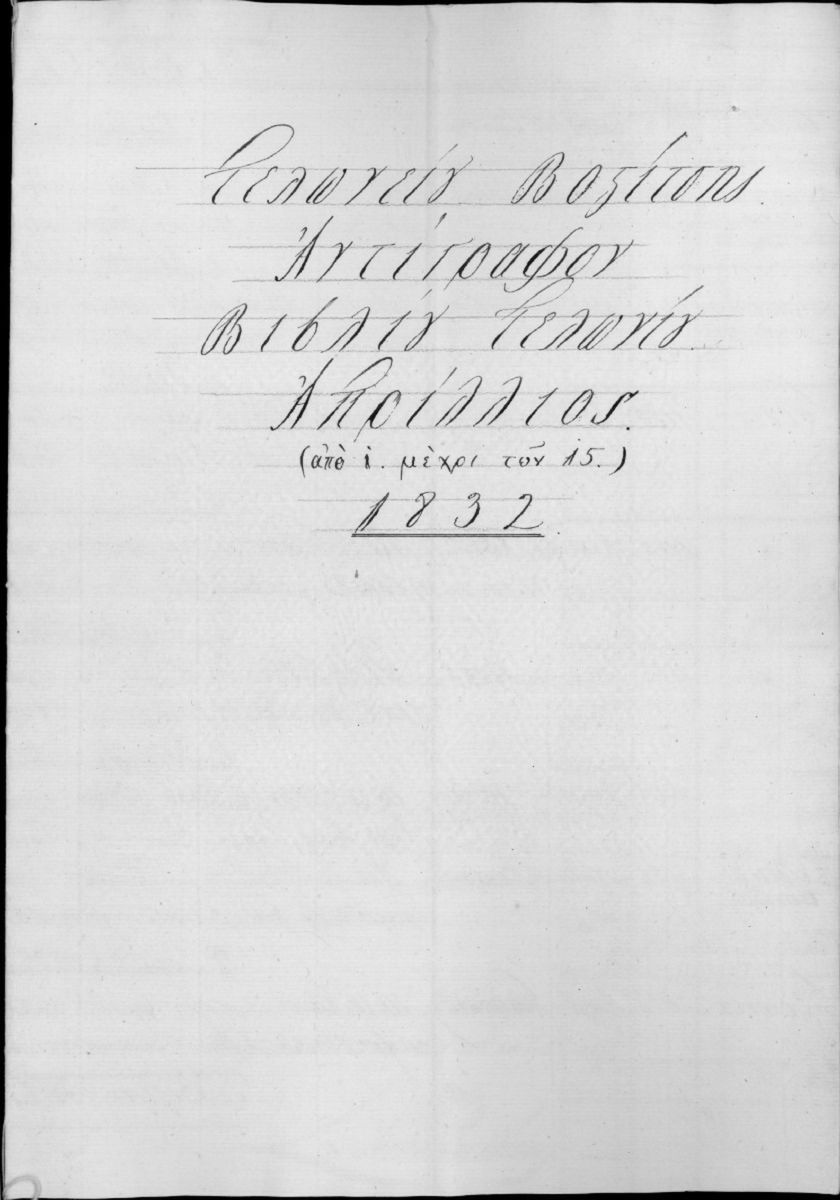 Τελωνείȣ Βοςίτσης.
Ἀντίγραφον
Βιβλίȣ Τελωνίȣ
Ἀπρίλλιος.
(ἀπὸ ἱ. μὲχρι τῶν 15.)
1832